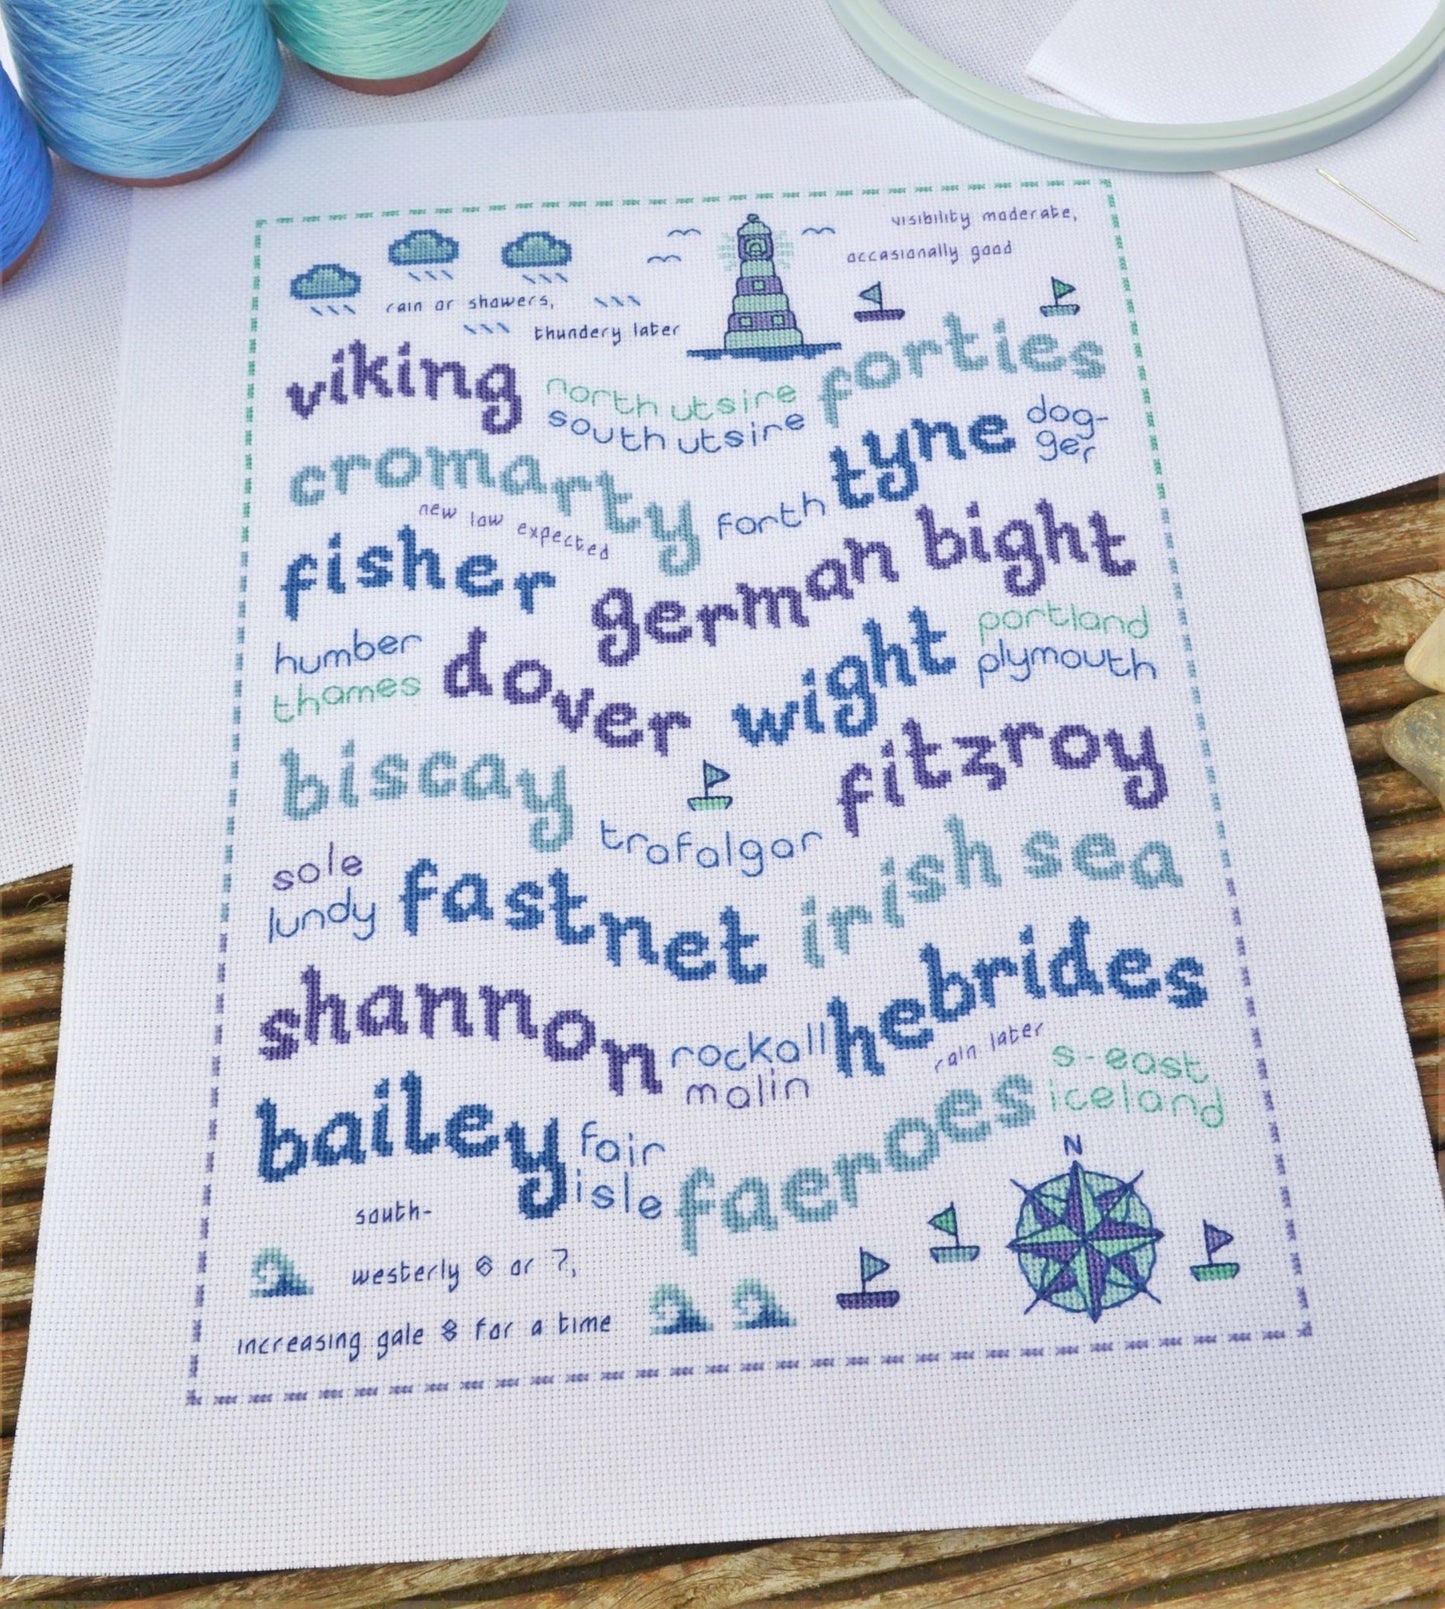 visibility moderate,
occasionally good
rain or showers,
thundery later
viking
north utsire
south utsire
forties
cromarty
forth
tyne
dog-
ger
new low expected
fisher
german bight
humber
thames
dover
wight
portland
plymouth
biscay
trafalgar
fitzroy
sole
lundy
fastnet
irish sea
shannon
rockall
malin
hebrides
rain later
bailey
fair
isle
faeroes
s-east
iceland
N
south-
westerly 6 or 7,
increasing gale 8 for a time